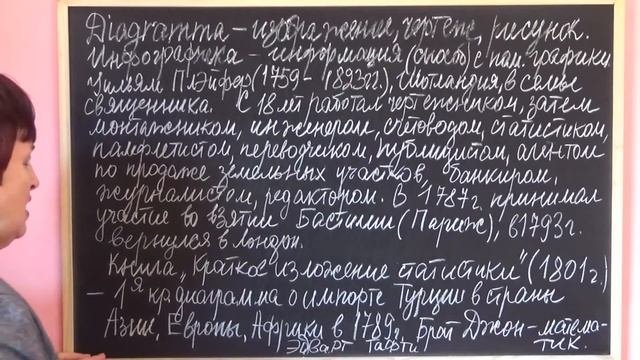 Diagramma – изображение, чертеж, рисунок.
Инфографика – информация (смость) с пом. графики
Уильям Плэйфер (1759 – 1823гг.), Шотландия, в семье
священника. С 18 лет работал чертежником, затем
монтажником, инженером, счетоводом, статистиком,
памфлетистом, переводчиком, публицистом, агентом
по продаже земельных участков, банкиром,
журналистом, редактором. В 1787г. принимал
участие во взятии Бастилии (Париж), в 1793г.
вернулся в Лондон.
Книга „Краткое изложение статистики" (1801г.)
– 1я кр. диаграмма о импорте Турции в страны
Азии, Европы, Африки в 1789г. Брат Джон – матема-
Эдварт Тафти тик.